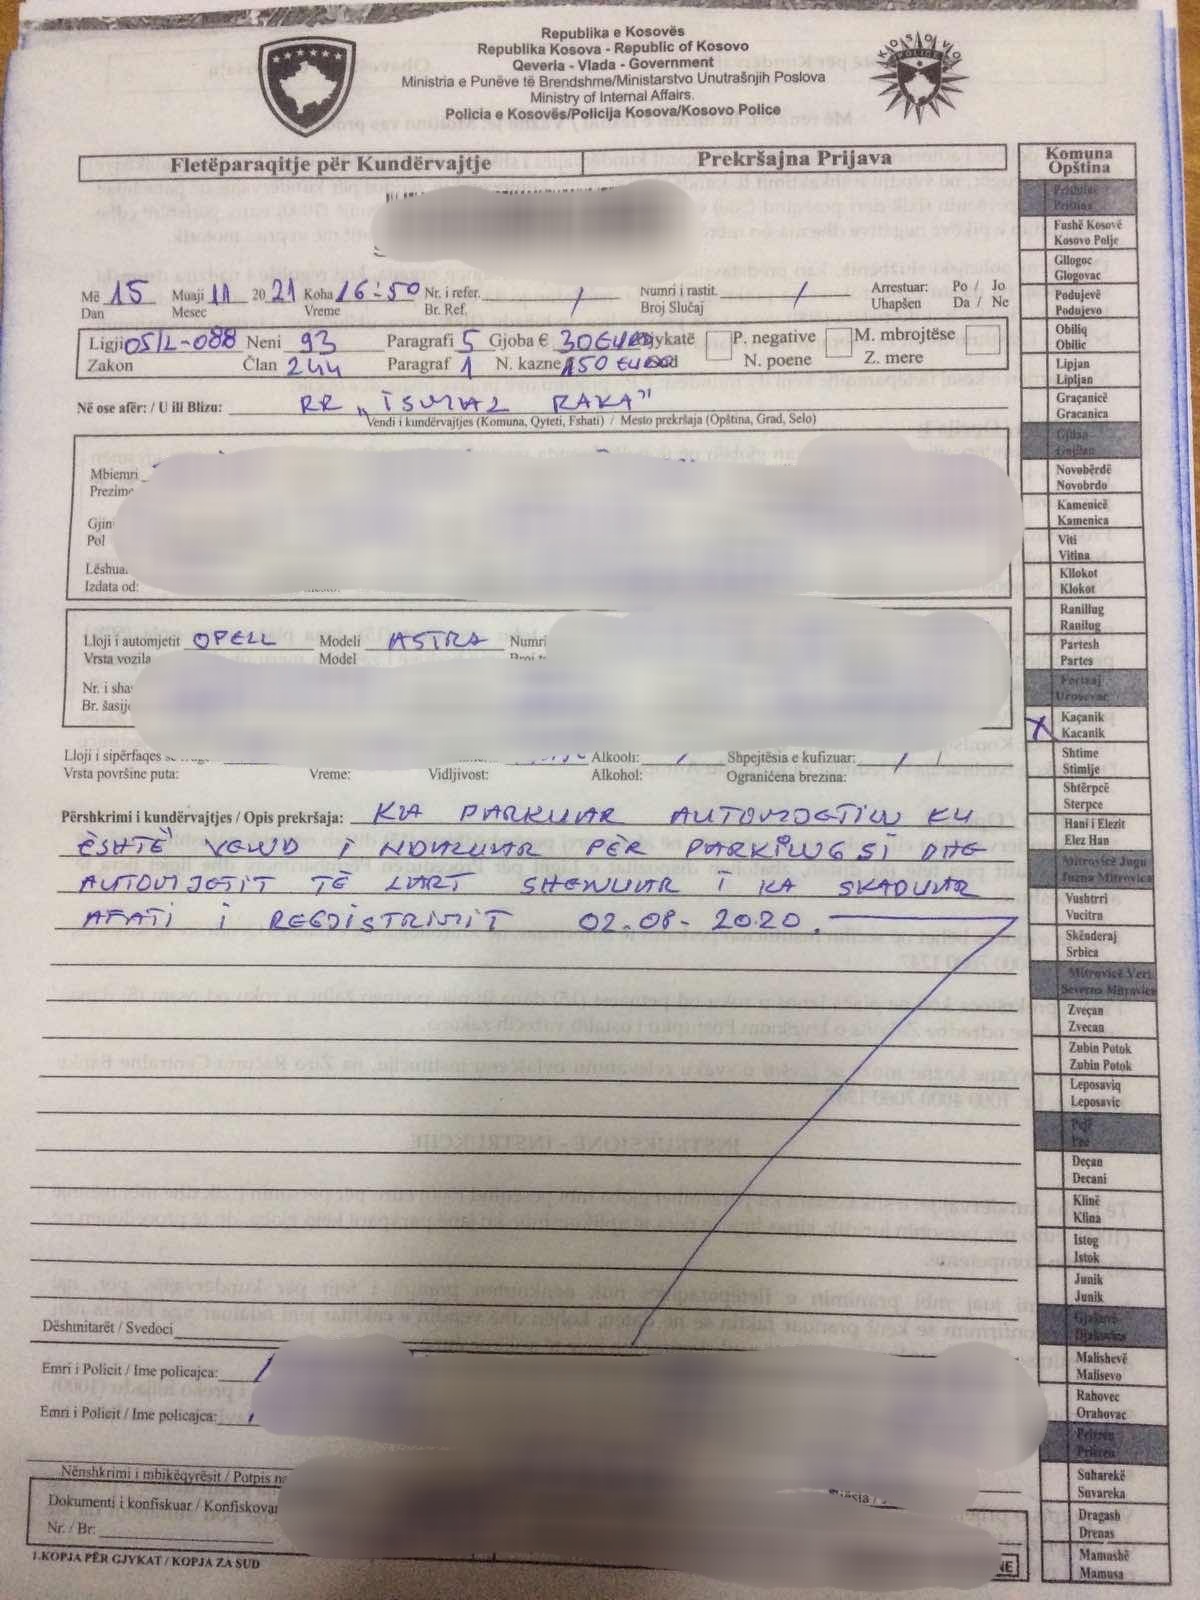 Republika e Kosovës
Republika Kosova - Republic of Kosovo
Qeveria - Vlada - Government
Ministria e Punëve të Brendshme/Ministarstvo Unutrašnjih Poslova
Ministry of Internal Affairs.
Policia e Kosovës/Policija Kosova/Kosovo Police
KOSOVO
POLICE
Fletëparaqitje për Kundërvajtje Prekršajna Prijava
Më 15 Muaji 11 2021 Koha 16:50 Nr. i refer. / Numri i rastit. / Arrestuar: Po / Jo
Dan Mesec Vreme Br. Ref. Broj Slučaj Uhapšen Da / Ne
Ligji 05/L-088 Neni 93 Paragrafi 5 Gjoba € 30 EURO P. negative M. mbrojtëse
Zakon Član 244 Paragraf 1 N. kazne 150 EURO N. poene Z. mere
Në ose afër: / U ili Blizu: RR "ISMAL RAKA"
Vendi i kundërvajtjes (Komuna, Qyteti, Fshati) / Mesto prekršaja (Opština, Grad, Selo)
Mbiemri
Prezime
Gjin
Pol
Lëshua.
Izdata od:
Lloji i automjetit OPELL Modeli ASTRA Numri
Vrsta vozila Model
Nr. i sha
Br. šasije
Lloji i sipërfaqes së Alkooli: / Shpejtësia e kufizuar: /
Vrsta površine puta: Vreme: Vidljivost: Alkohol: Ograničena brezina:
Përshkrimi i kundërvajtjes / Opis prekršaja: KA PARKUAR AUTOMJETIN KU
ËSHTË VEND I NDALUAR PËR PARKING SI DHE
AUTOMJETIT TË LART SHENUAR I KA SKADUAR
AFATI I REGJISTRIMIT 02-08-2020.
Dëshmitarët / Svedoci
Emri i Policit / Ime policajca:
Emri i Policit / Ime policajca:
Nënshkrimi i mbikëqyrësit / Potpis na
Dokumenti i konfiskuar / Konfiskovan
Nr. / Br:
1.KOPJA PËR GJYKAT / KOPJA ZA SUD
NE
Komuna
Opština
Prishtinë
Pristina
Fushë Kosovë
Kosovo Polje
Gllogoc
Glogovac
Podujevë
Podujevo
Obiliq
Obilic
Lipjan
Lipljan
Graçanicë
Gracanica
Gjilan
Gnjilan
Novobërdë
Novobrdo
Kamenicë
Kamenica
Viti
Vitina
Kllokot
Klokot
Ranillug
Ranilug
Partesh
Partes
Ferizaj
Urosevac
X Kaçanik
Kacanik
Shtime
Stimlje
Shtërpcë
Sterpce
Hani i Elezit
Elez Han
Mitrovicë Jugu
Juzna Mitrovica
Vushtrri
Vucitrn
Skënderaj
Srbica
Mitrovicë Veri
Severna Mitrovica
Zveçan
Zvecan
Zubin Potok
Zubin Potok
Leposaviq
Leposavic
Pejë
Pec
Deçan
Decani
Klinë
Klina
Istog
Istok
Junik
Junik
Gjakovë
Djakovica
Malishevë
Malisevo
Rahovec
Orahovac
Prizren
Prizren
Suharekë
Suvareka
Dragash
Drenas
Mamushë
Mamusa